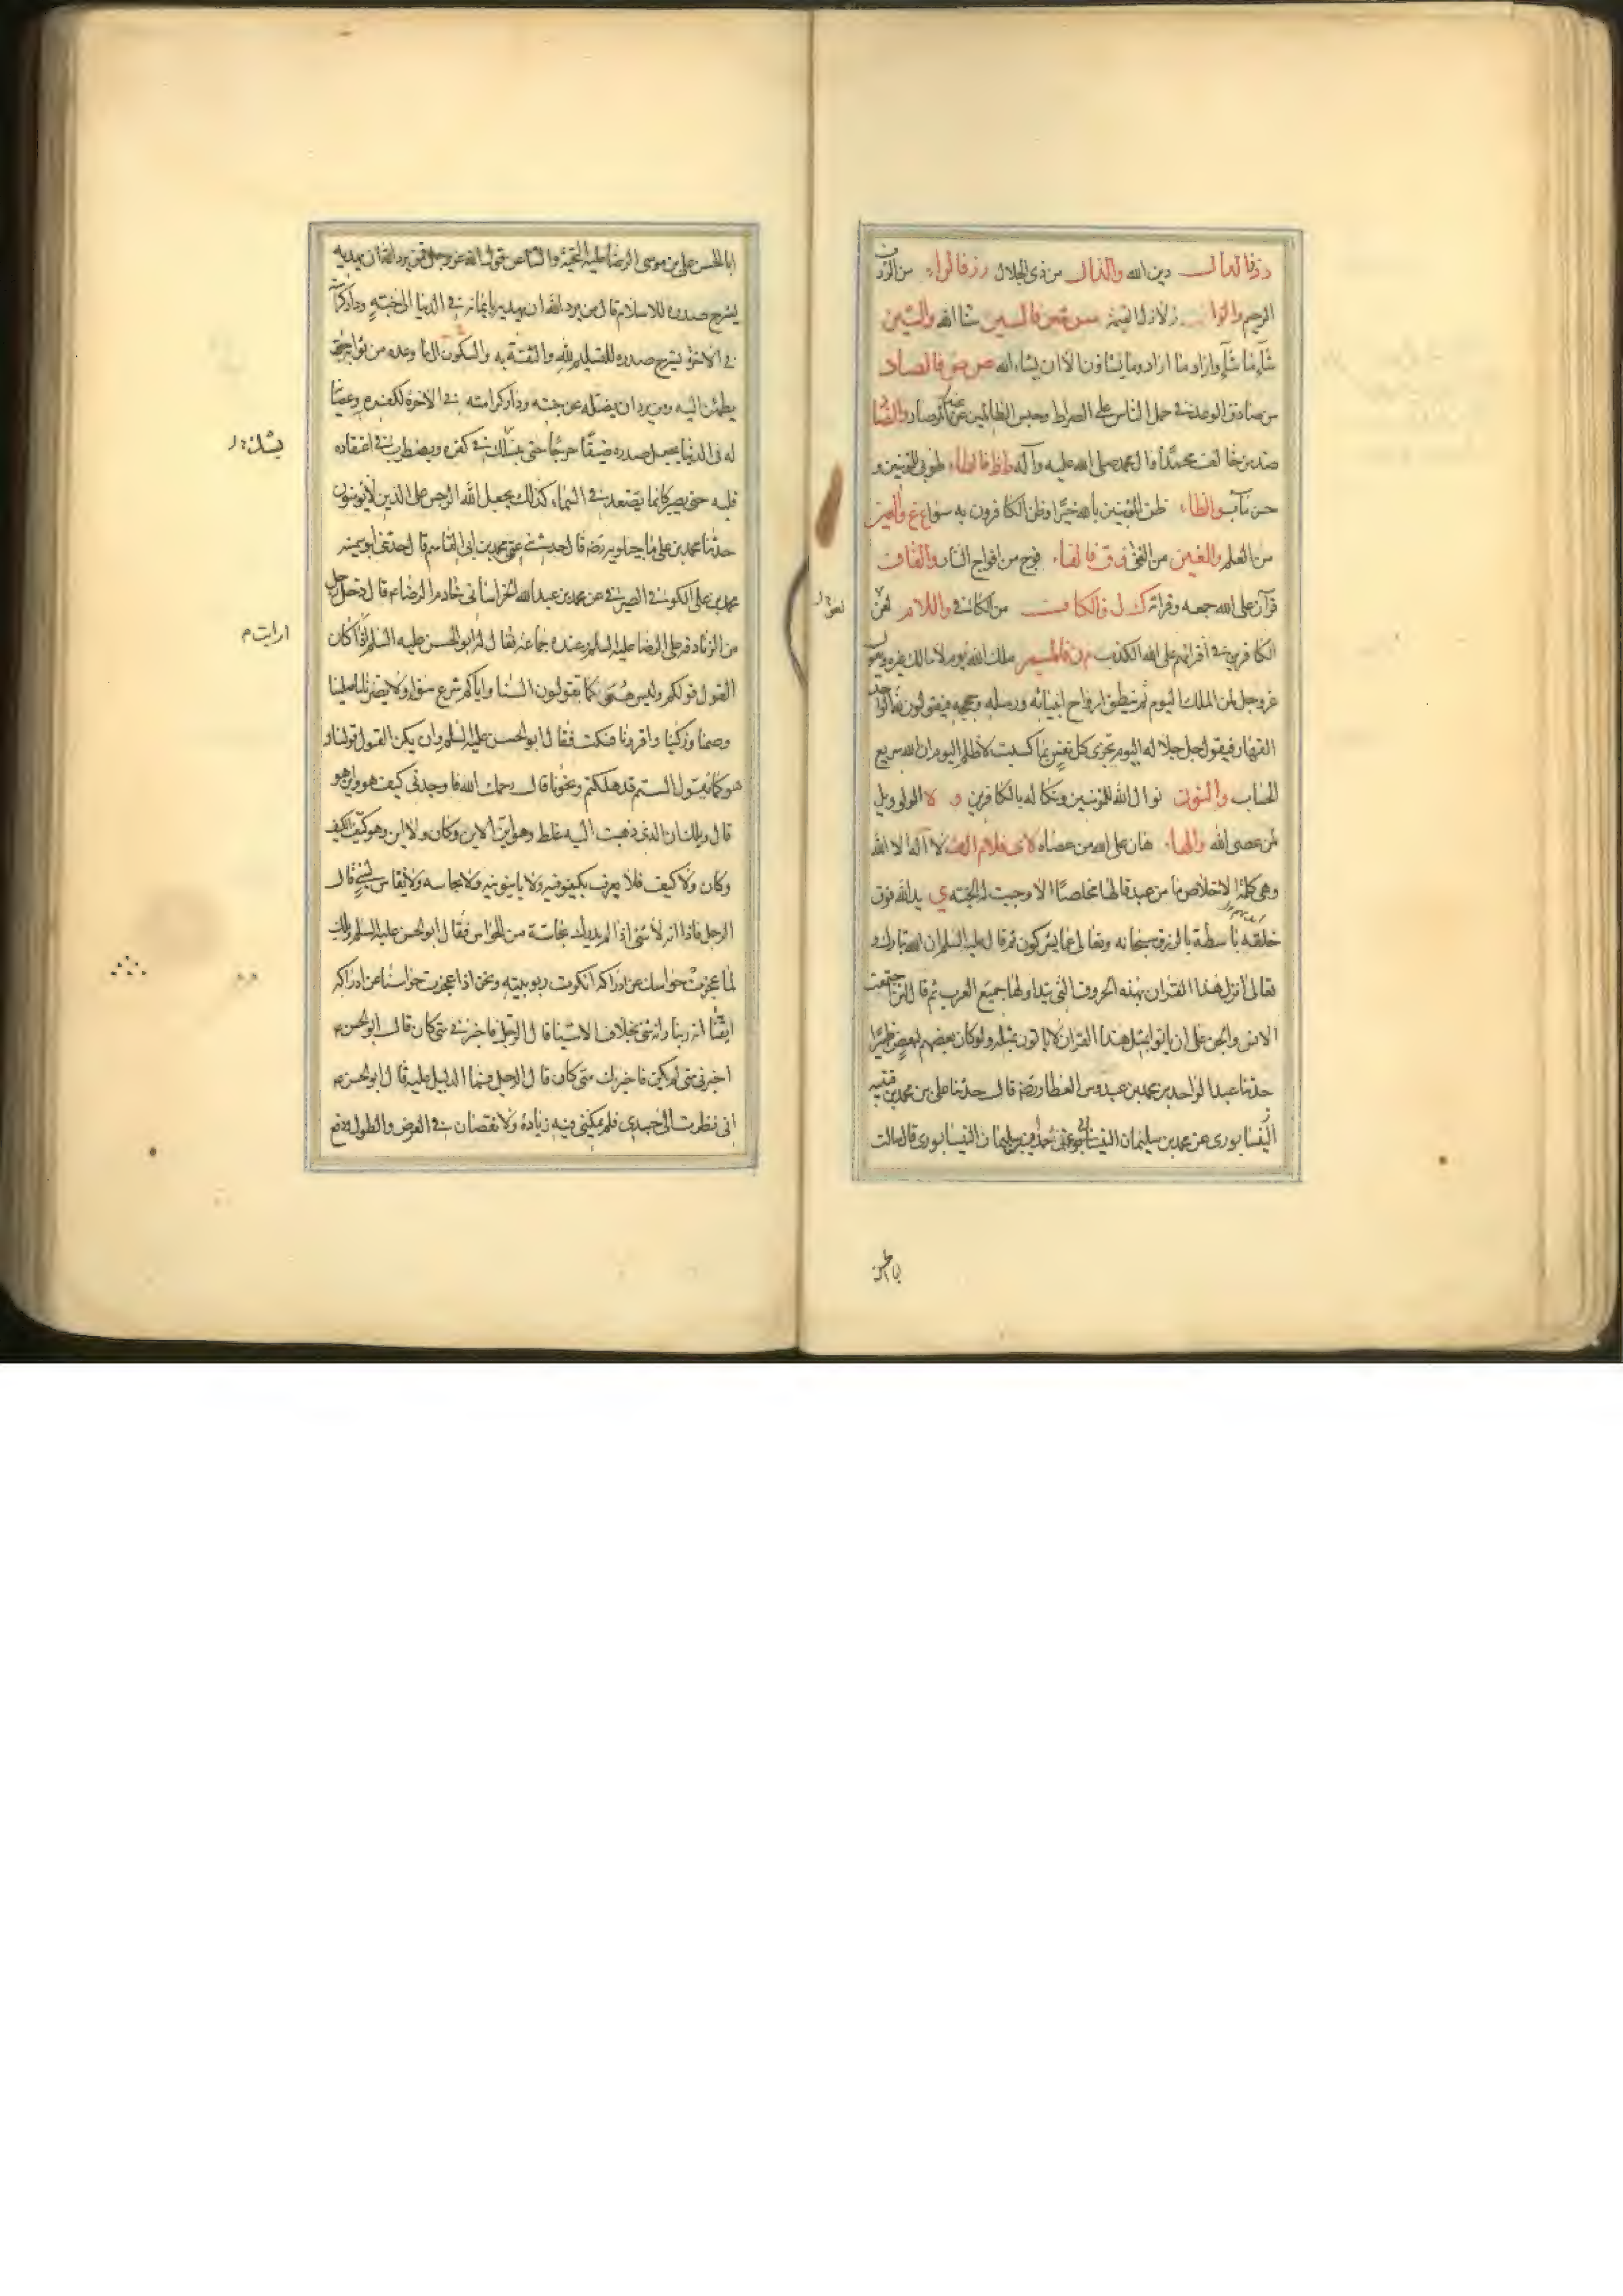 د ذ فالدال دين الله والذال من ذي الجلال ر ز فالراء من الرؤف
الرحيم والزاء زلازل القيمة س ش فالسين سنا الله والشين
شآء ما شآء واراد ما اراد وما يشاؤن الا ان يشاء الله ص ض فالصاد
من صادق الوعد في حمل الناس على الصراط وحبس الظالمين عند المرصاد والضاد
ضل من خالف محمدا وال محمد صلى الله عليه وآله ط ظ فالطاء طوبى للمؤمنين و
حسن مآب والظاء ظن المؤمنين بالله خيرا وظن الكافرون به سوءا ع غ والعين
من العلم والغين من الغنى ف ق فالفاء فوج من افواج النار والقاف
قرآن على الله جمعه وقرانه ك ل فالكاف من الكافي واللام لعن
الكافرين في افترائهم على الله الكذب م ن فالميم ملك الله يوم لا مالك غيره ويقول
عز وجل لمن الملك اليوم ثم ينطق ارواح انبيائه ورسله وحججه فيقولون لله الواحد
القهار فيقول جل جلاله اليوم تجزى كل نفس بما كسبت لا ظلم اليوم ان الله سريع
الحساب والنون نوال الله للمؤمنين ونكاله بالكافرين و ه فالواو ويل
لمن عصى الله والهاء هان على الله من عصاه لا ى فلام الف لا آله الا الله
وهى كلمة الاخلاص ما من عبد قالها مخلصا الا وجبت له الجنة ي يد الله فوق
خلقه باسطة بالرزق سبحانه وتعالى عما يشركون ثم قال عليه السلم ان الله تبارك و
تعالى انزل هذا القران بهذه الحروف التى يتداولها جميع العرب ثم قال لئن اجتمعت
الانس والجن على ان ياتوا بمثل هذا القران لا ياتون بمثله ولو كان بعضهم لبعض ظهيرا
حدثنا عبد الواحد بن محمد بن عبدوس العطار رضه قال حدثنا على بن محمد بن قتيبه
النيسابورى عن حمدان بن سليمان النيسابورى قال سالت
ابا الحسن
لعن
ابا الحسن على بن موسى الرضا عليه التحية والثنا عن قول الله عز وجل فمن يرد الله ان يهديه
يشرح صدره للاسلام قال من يرد الله ان يهديه بايمانه في الدنيا الى جنته ودار كرامته
في الاخرة يشرح صدره للتسليم لله والثقة به والسكون الى ما وعده من ثوابه حتى
يطمئن اليه ومن يرد ان يضله عن جنته ودار كرامته في الاخرة لكفره وعصيانه
له في الدنيا يجعل صدره ضيقا حرجا حتى يشك في كفره ويضطرب في اعتقاده
قلبه حتى يصير كانما يصعد في السماء كذلك يجعل الله الرجس على الذين لا يؤمنون
حدثنا محمد بن على ماجيلويه رضه قال حدثني عمى محمد بن ابى القاسم قال حدثنى ابو سمينه
محمد بن على الكوفي الصيرفي عن محمد بن عبد الله الخراسانى خادم الرضا ع قال دخل رجل
من الزنادقه على الرضا عليه السلم وعنده جماعة فقال له ابو الحسن عليه السلم اذا كان
القول قولكم وليس هو كما تقولون السنا واياكم شرع سواء ولا يضرنا ما صلينا
وصمنا وزكينا واقررنا فسكت فقال ابو الحسن عليه السلم وان يكن القول قولنا و
هو كما نقول الستم قد هلكتم ونجونا قال رحمك الله فاوجدنى كيف هو واين هو
قال ويلك ان الذى ذهبت اليه غلط وهو اين الاين وكان ولا اين وهو كيف الكيف
وكان ولا كيف فلا يعرف بكيفوفيه ولا باينونيه ولا بحاسه ولا يقاس بشئ قال
الرجل فاذا انه لا شئ اذا لم يدرك بحاسة من الحواس فقال ابو الحسن عليه السلم ويلك
لما عجزت حواسك عن ادراكه انكرت ربوبيته ونحن اذا عجزت حواسنا عن ادراكه
ايقنا انه ربنا وانه شئ بخلاف الاشيا قال الرجل فاخبرني متى كان قال ابو الحسن ع
اخبرنى متى لم يكن فاخبرك متى كان قال الرجل فما الدليل عليه قال ابو الحسن ع
انى نظرت الى جسدى فلم يمكنى فيه زيادة ولا نقصان في العرض والطول ودفع
يشك
ارايت م